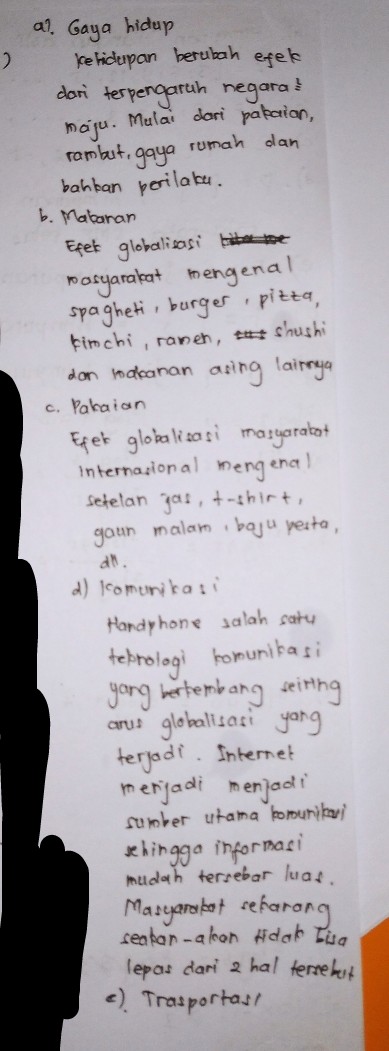 a). Gaya hidup
) Kehidupan berubah efek
dari terpengaruh negara²
maju. Mulai dari pakaian,
rambut, gaya rumah dan
bahkan perilaku.
b. Makanan
Efek globalisasi
masyarakat mengenal
spagheti, burger, pizza,
kimchi, ramen, shushi
dan makanan asing lainnya
c. Pakaian
Efek globalisasi masyarakat
Internasional mengenal
setelan jas, t-shirt,
gaun malam, baju pesta,
dll.
d) Komunikasi
Handphone salah satu
teknologi komunikasi
yang berkembang seiring
arus globalisasi yang
terjadi. Internet
menjadi menjadi
sumber utama komunikasi
sehingga informasi
mudah tersebar luas.
Masyarakat sekarang
seakan-akan tidak bisa
lepas dari 2 hal tersebut
e). Trasportasi